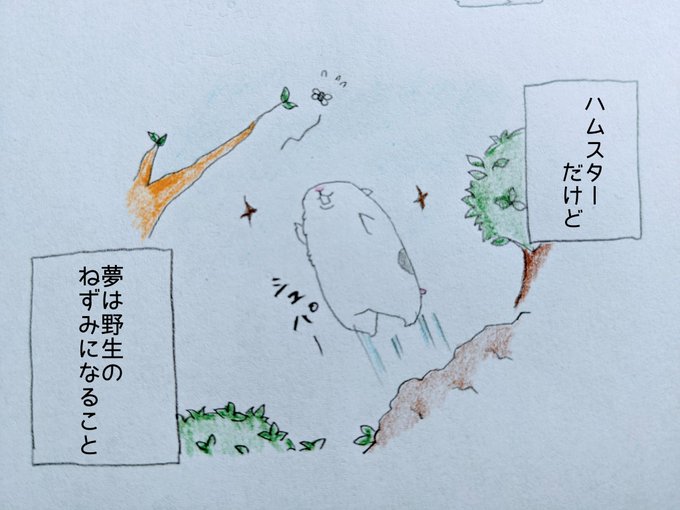 ハムスター
だけど
シュパー
夢は野生の
ねずみになること